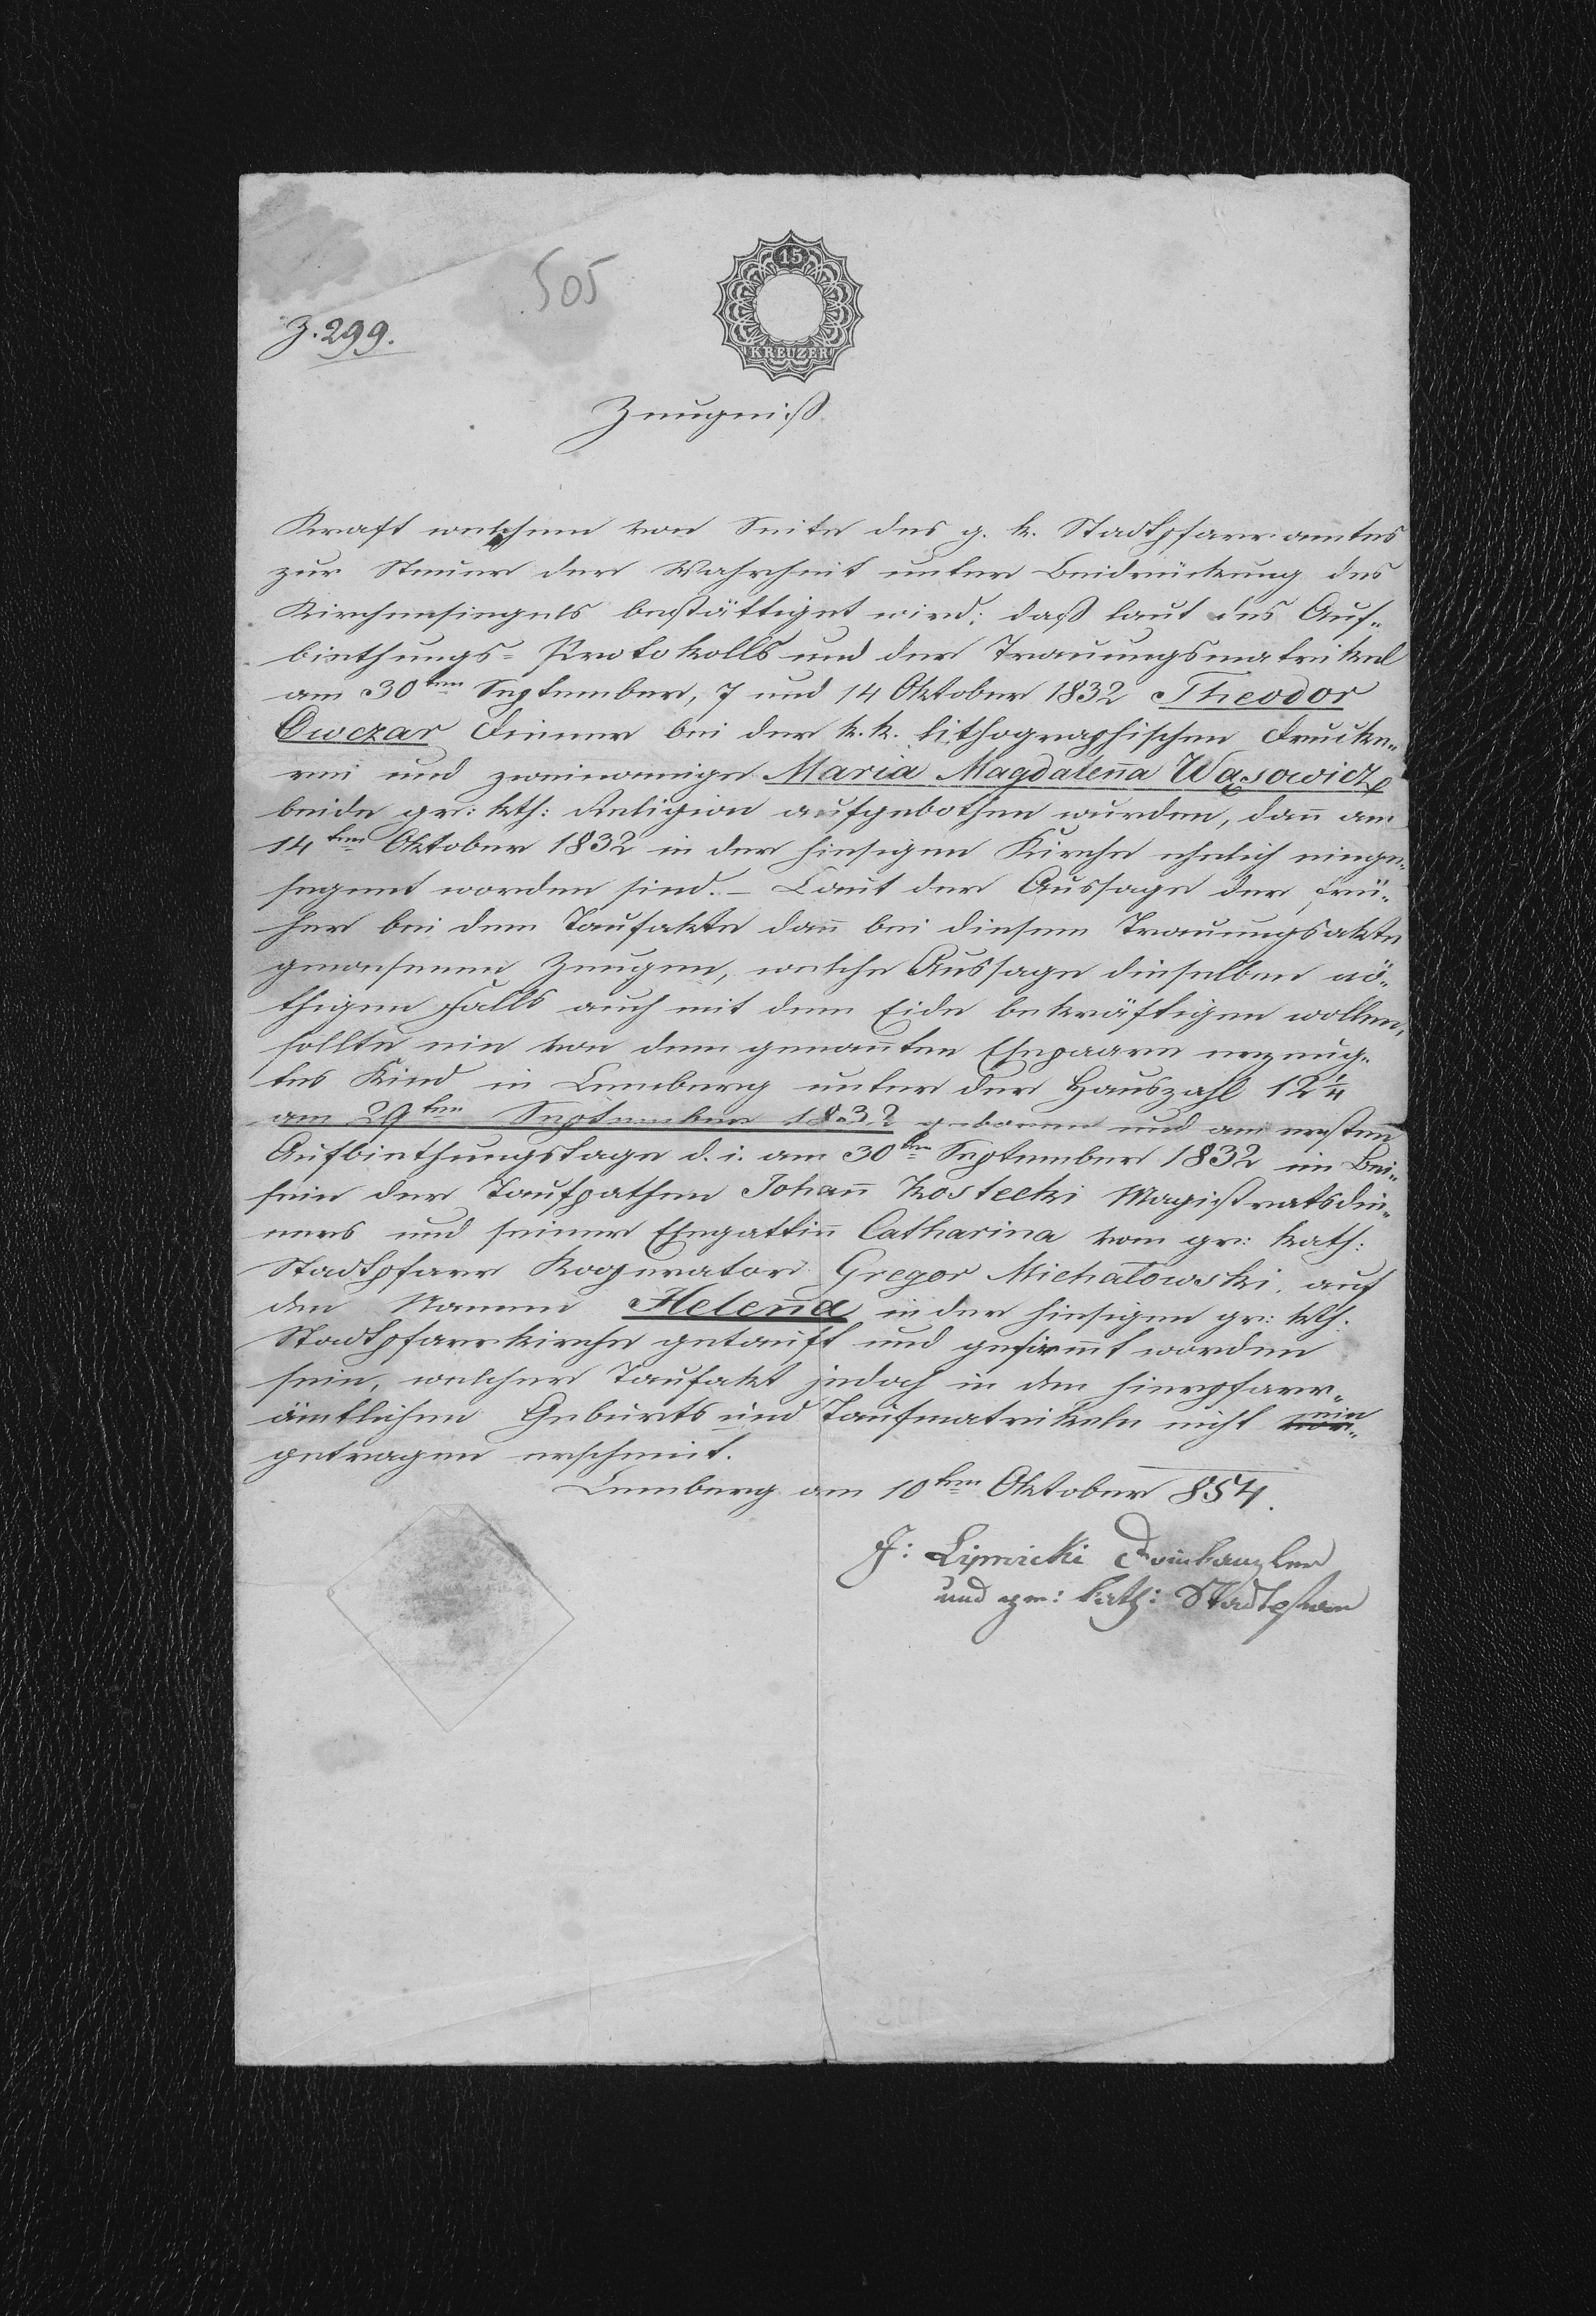 505
15
Z. 299.
KREUZER
Zeugniß
Kraft welchem von Seite des g. k. Stadtpfarramtes
zur Steuer der Wahrheit unter Beidrückung des
Kirchensiegels bestättiget wird: daß laut des Auf-
biethungs-Protokolls und der Trauungsmatrikel
am 30ten September, 7 und 14 Oktober 1832 Theodor
Owczar Diener bei der k. k. lithographischen Drucke-
rei und zweinamige Maria Magdaleña Wąsowicz
beide gr: kth: Religion aufgebothen wurden, dañ am
14ten Oktober 1832 in der hiesigen Kirche ehelich einge-
segnet worden sind. – Laut der Aussage der frü-
her bei dem Taufakte dañ bei diesem Trauungsakte
gewesenen Zeugen, welche Aussage dieselben nö-
thigen Falls auch mit dem Eide bekräftigen wollen,
sollte ein von dem genañten Ehepaare erzeug-
tes Kind in Lemberg unter der Hauszahl 12 1/4
am 29ten September 1832 geboren und am ersten
Aufbiethungstage d. i. am 30ten September 1832 im Bei-
sein der Taufpathen Johañ Kostecki Magistratsdie-
ners und seiner Ehegattiñ Catharina vom gr: kath:
Stadtpfarr Kooperator Gregor Michałowski, auf
den Namen Heleña in der hiesigen gr: kth:
Stadtpfarrkirche getauft und gefirmt worden
sein, welcher Taufakt jedoch in den hierpfarr-
ämtlichen Geburts und Taufmatrikeln nicht ein-
getragen erscheint.
Lemberg am 10ten Oktober 854.
J: Lipnicki Domkanzler
und gr: kath: Stadtpfarr